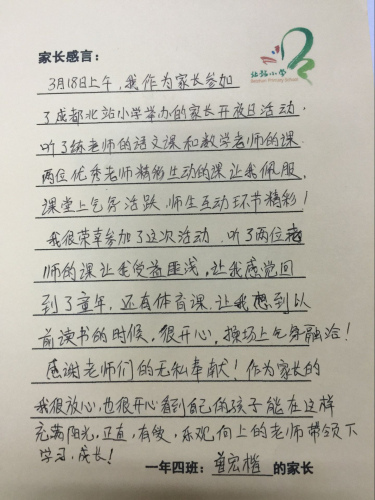 家长感言:
北站小学
3月18日上午,我作为家长参加
了成都北站小学举办的家长开放日活动,
听了练老师的语文课和数学老师的课
两位优秀老师精彩生动的课让我佩服,
课堂上气氛活跃 师生互动环节精彩!
我很荣幸参加了这次活动 听了两位
师的课让我受益匪浅,让我感觉回
到了童年,还有体育课,让我想到以
前读书的时候,很开心,操场上气氛融洽!
感谢老师们的无私奉献!作为家长的
我很放心,也很开心看到自己的孩子能在这样
充满阳光,正直,有爱,乐观,向上的老师带领下
学习,成长!
一年四班:曾宏楷 的家长